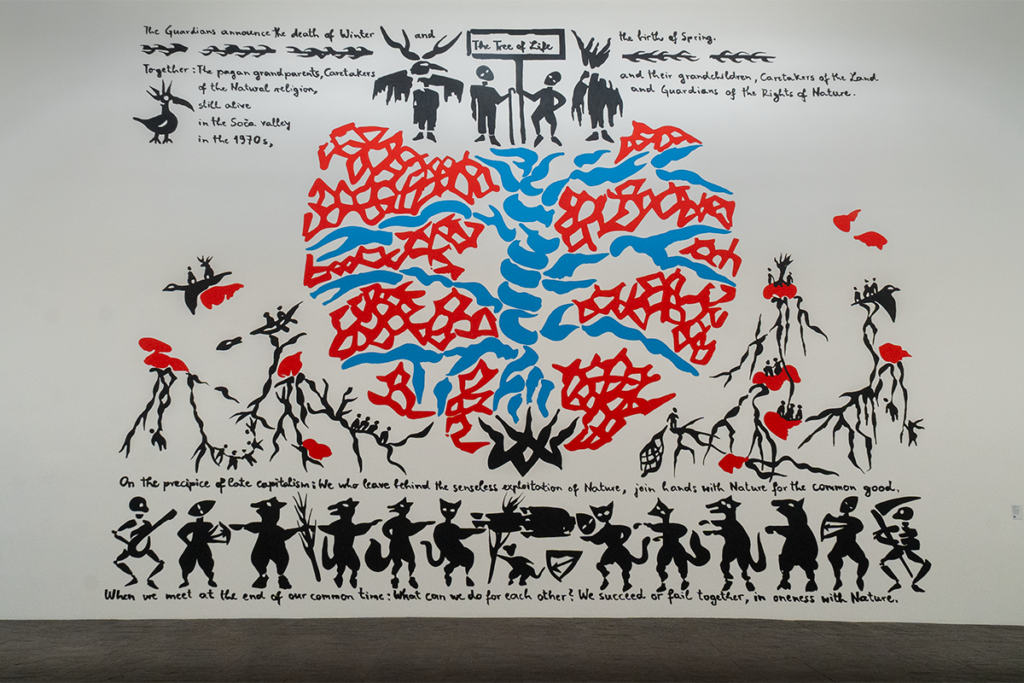 The Guardians announce the death of Winter and
The Tree of Life
the birth of Spring.
Together: The pagan grandparents, Caretakers
of the Natural religion,
still alive
in the Soča valley
in the 1970s,
and their grandchildren, Caretakers of the Land
and Guardians of the Rights of Nature.
On the precipice of late capitalism: We who leave behind the senseless exploitation of Nature, join hands with Nature for the common good.
When we meet at the end of our common time: What can we do for each other? We succeed or fail together, in oneness with Nature.